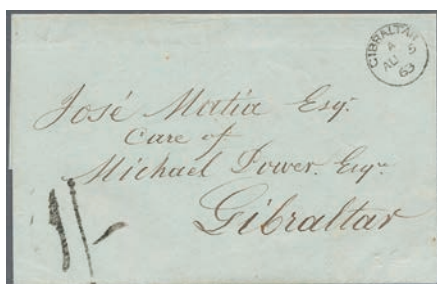 GIBRALTAR
A
AU 5
63
José Matia Esqr.
Care of
Michael Power. Esqre.
Gibraltar
1/-